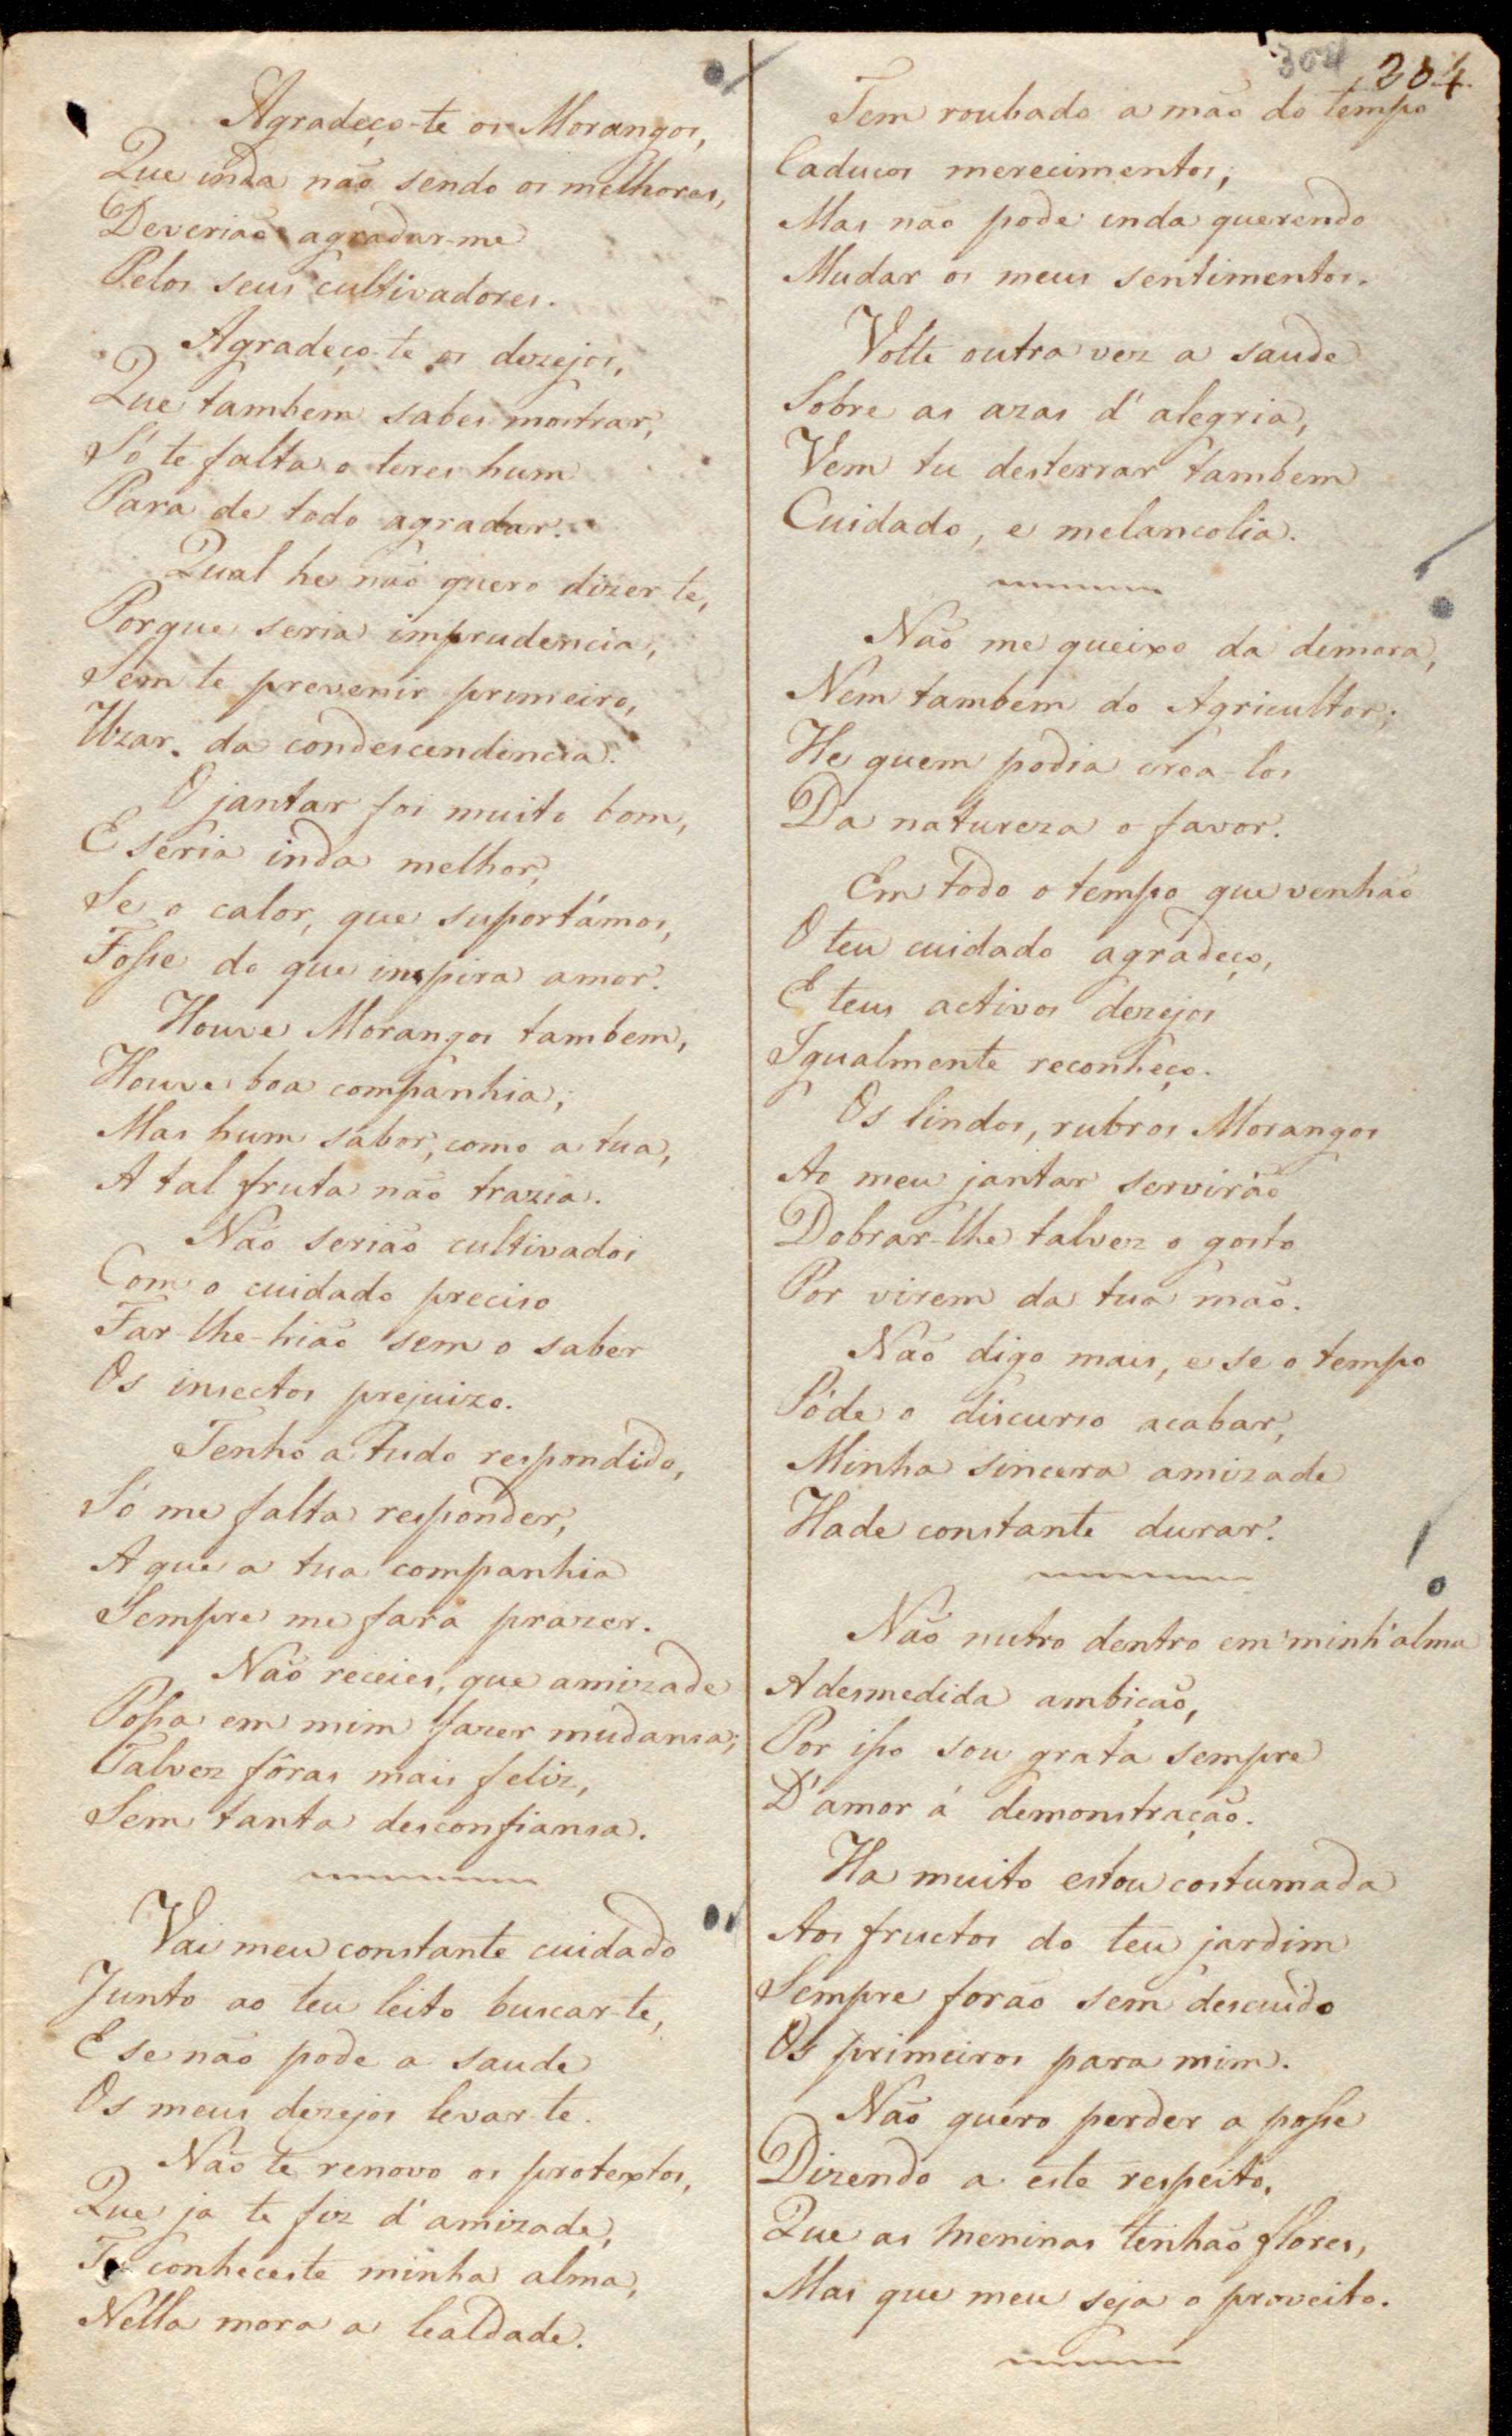 304 204
Agradeço-te os Morangos,
Que inda não sendo os melhores,
Deverião agradar-me
Pelos seus cultivadores.
Agradeço-te os dezejos,
Que tambem sabes mostrar,
Só te falta o teres hum
Para de todo agradar.
Qual he não quero dizer-te,
Porque seria imprudencia,
Sem te prevenir primeiro,
Uzar da condescendencia.
O jantar foi muito bom,
E seria inda melhor,
Se o calor, que suportámos,
Fosse do que inspira amor.
Houve Morangos tambem,
Houve boa companhia;
Mas hum sabor, como a tua,
A tal fruta não trazia.
Não serião cultivados
Com o cuidado preciso
Far-lhe-hião sem o saber
Os insectos prejuizo.
Tenho a tudo respondido,
Só me falta responder,
A que a tua companhia
Sempre me fará prazer.
Não receies, que amizade
Possa em mim fazer mudansa;
Talvez fôras mais feliz,
Sem tanta desconfiansa.
Vai meu constante cuidado
Junto ao teu leito buscar-te,
E se não pode a saude
Os meus dezejos levar-te.
Não te renovo os protextos,
Que ja te fiz d'amizade,
Tu conheceste minha alma,
Nella mora a lealdade.
Tem roubado a mão do tempo
Caducos merecimentos;
Mas não pode inda querendo
Mudar os meus sentimentos.
Volte outra vez a saude
Sobre as azas d'alegria,
Vem tu desterrar tambem
Cuidado, e melancolia.
Não me queixo da demora,
Nem tambem do Agricultor;
He quem podia crea-los
Da natureza o favor.
Em todo o tempo que venhão
O teu cuidado agradeço,
E teus activos dezejos
Igualmente reconheço.
Os lindos, rubros Morangos
Ao meu jantar servirão
Dobrar-lhe talvez o gosto
Por virem da tua mão.
Não digo mais, e se o tempo
Póde o discurso acabar,
Minha sincera amizade
Hade constante durar.
Não nutro dentro em minh'alma
A desmedida ambição,
Por isso sou grata sempre
D'amor á demonstração.
Ha muito estou costumada
Aos fructos do teu jardim
Sempre forão sem descuido
Os primeiros para mim.
Não quero perder a posse
Dizendo a este respeito,
Que as meninas tenhão flores,
Mas que meu seja o proveito.